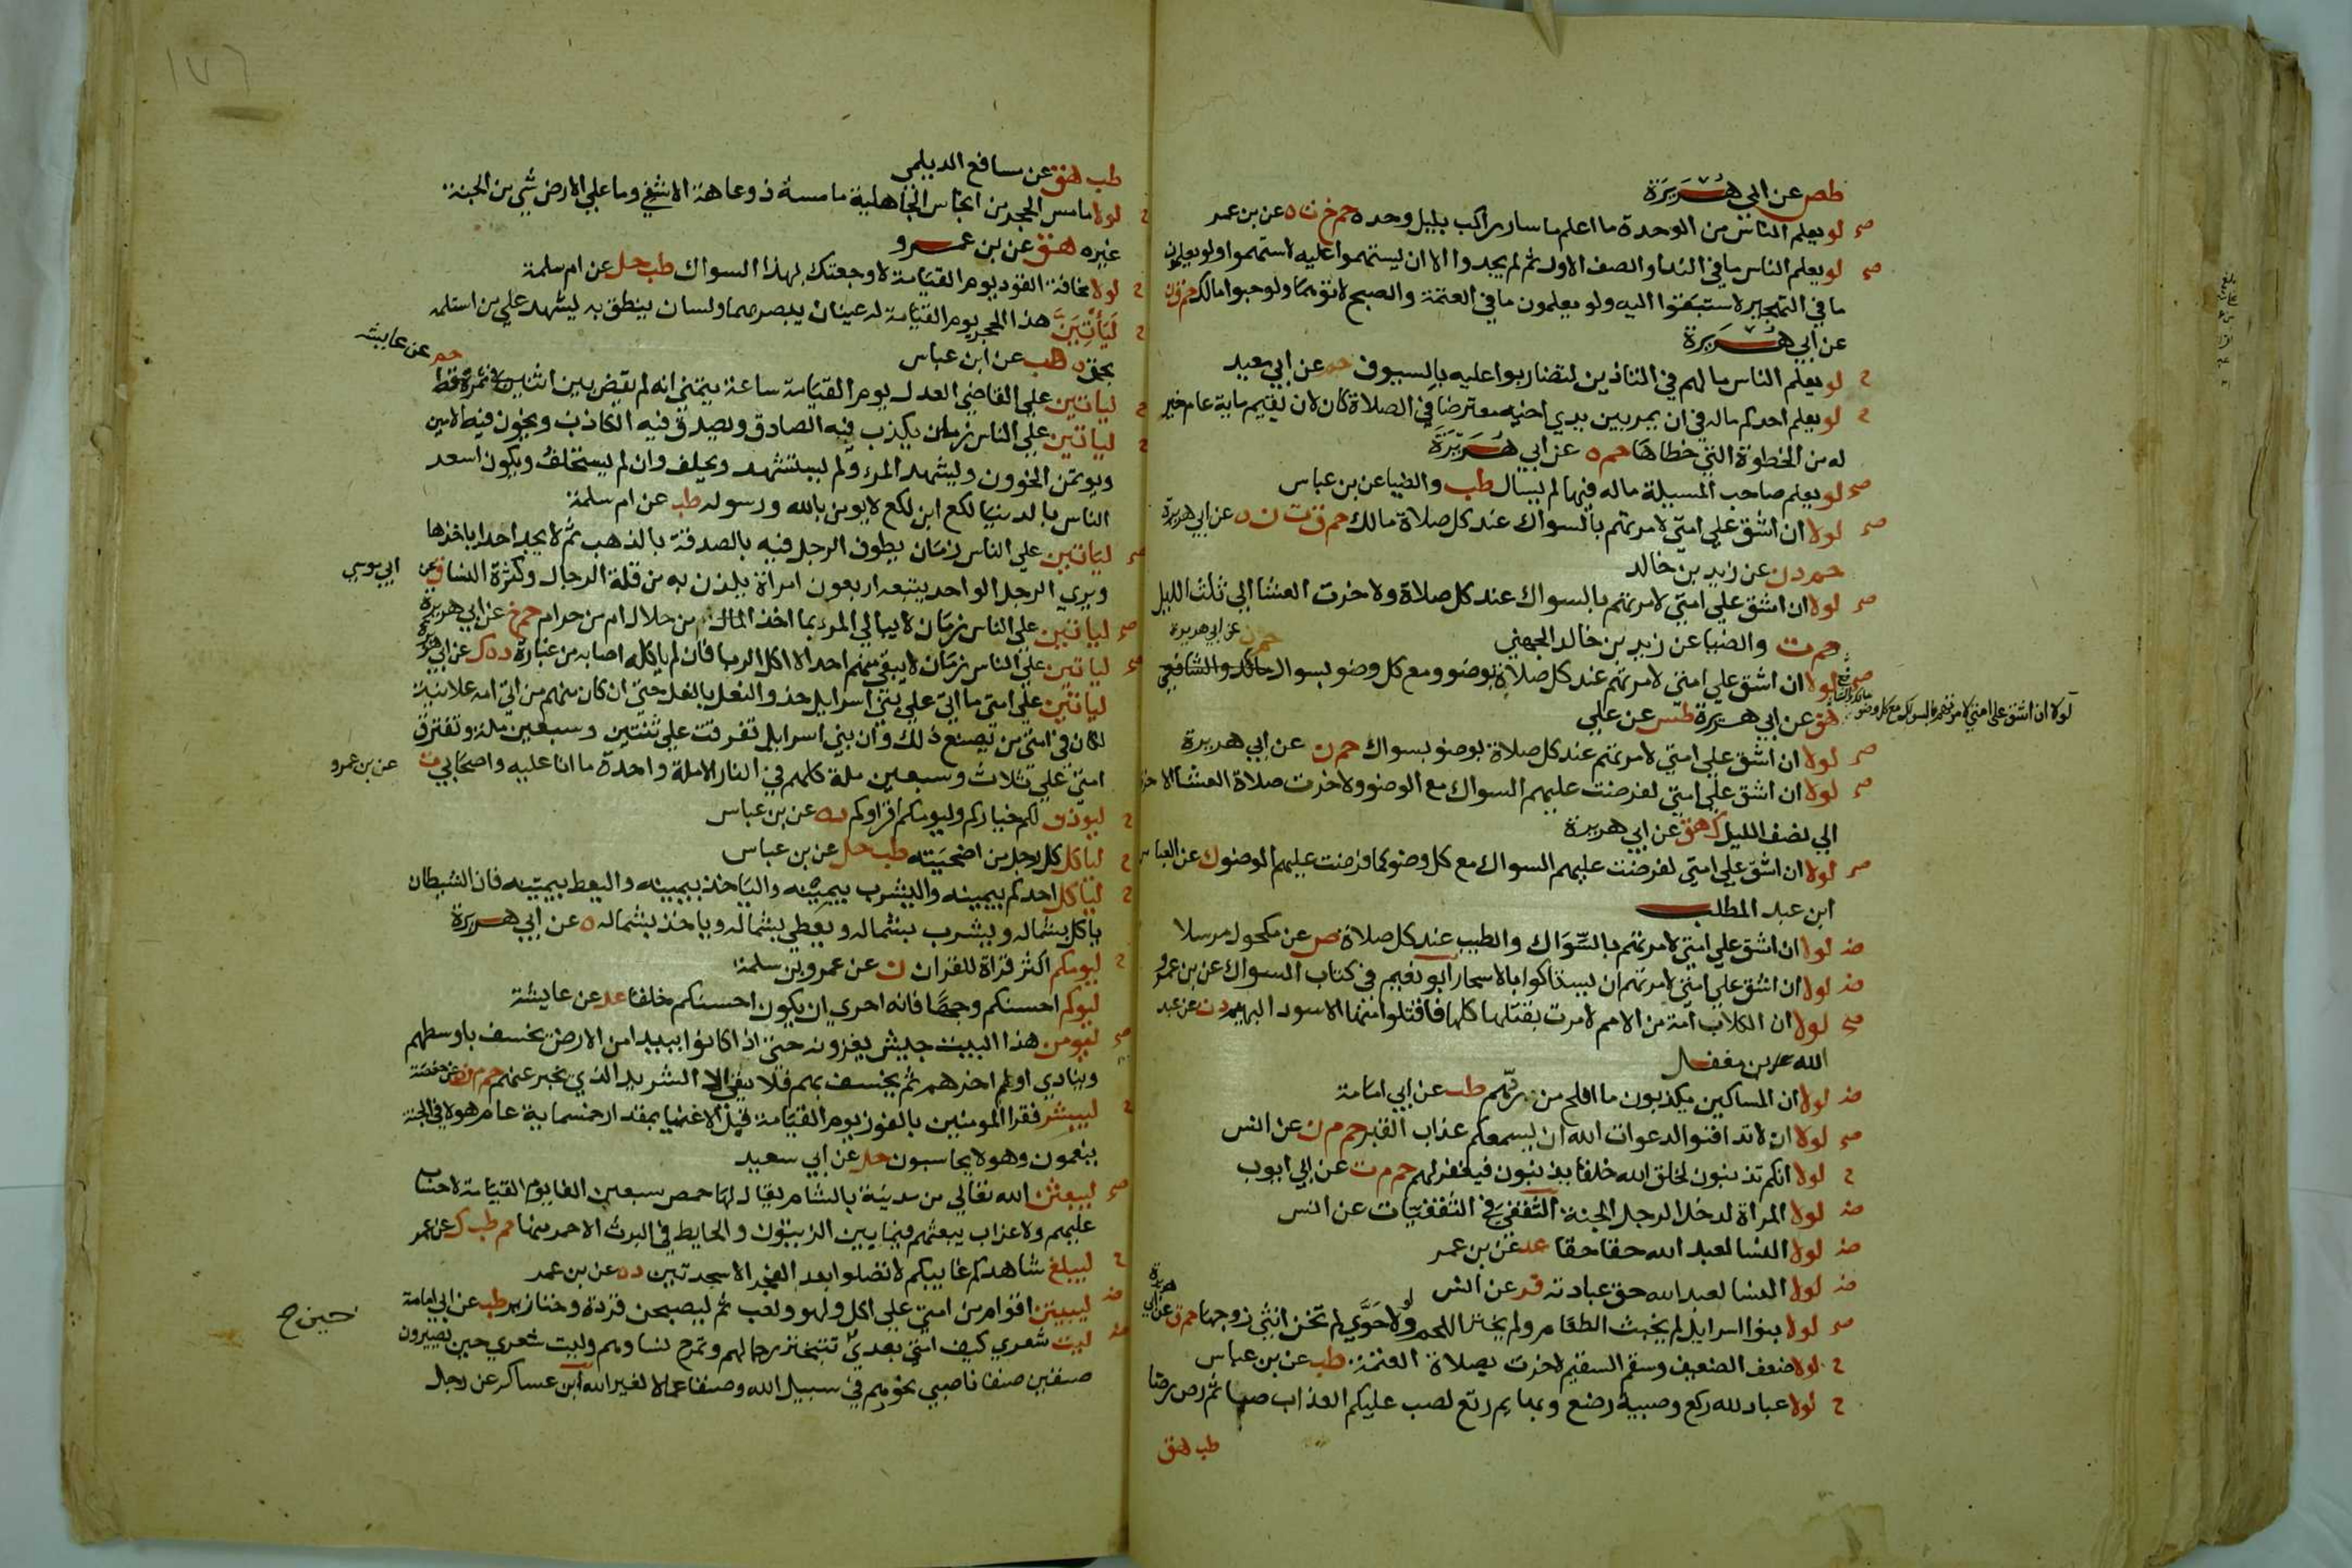 طص عن ابي هريرة
صح لو يعلم الناس من الوحدة ما اعلم ما سار راكب بليل وحده حم خ ت ه عن بن عمر
صح لو يعلم الناس ما في الندا والصف الاول ثم لم يجدوا الا ان يستهموا عليه لاستهموا ولو يعلمون
ما في التهجير لاستبقوا اليه ولو يعلمون ما في العتمة والصبح لاتوهما ولو حبوا مالك حم ق ن
عن ابي هريرة
ح لو يعلم الناس ما لهم في التاذين لتضاربوا عليه بالسيوف حم عن ابي سعيد
ح لو يعلم احدكم ماله في ان يمر بين يدي اخيه معترضا في الصلاة كان لان يقيم ماية عام خير
له من الخطوة التي خطاها حم ه عن ابي هريرة
صح لو يعلم صاحب المسيلة ماله فيها لم يسال طب والضيا عن بن عباس
صح لولا ان اشق علي امتي لامرتهم بالسواك عند كل صلاة مالك حم ق ت ن ه عن ابي هريرة
حم د ن عن زيد بن خالد
صح لولا ان اشق علي امتي لامرتهم بالسواك عند كل صلاة ولاخرت العشا الي ثلث الليل
حم ت والضيا عن زيد بن خالد الجهني
حم ن عن ابي هريرة
صح لولا ان اشق علي امتي لامرتهم عند كل صلاة بوضو ومع كل وضو بسواك مالك والشافعي
لولا ان اشق علي امتي لامرتهم بالسواك مع كل وضو مالك والشافعي
هق عن ابي هريرة طس عن علي
صح لولا ان اشق علي امتي لامرتهم عند كل صلاة بوضو بسواك حم ن عن ابي هريرة
صح لولا ان اشق علي امتي لفرضت عليهم السواك مع الوضو ولاخرت صلاة العشا الاخرة
الي نصف الليل ك هق عن ابي هريرة
صح لولا ان اشق علي امتي لفرضت عليهم السواك مع كل وضو كما فرضت عليهم الوضو ك عن العباس
ابن عبد المطلب
ض لولا ان اشق علي امتي لامرتهم بالسواك والطيب عند كل صلاة ص عن مكحول مرسلا
ض لولا ان اشق علي امتي لامرتهم ان يستاكوا بالاسحار ابو نعيم في كتاب السواك عن بن عمرو
صح لولا ان الكلاب امة من الامم لامرت بقتلها كلها فاقتلوا منها الاسود البهيم د ت عن عبد
الله بن مغفل
ض لولا ان المساكين يكذبون ما افلح من ردهم طب عن ابي امامة
صح لولا ان لا تدافنوا لدعوت الله ان يسمعكم عذاب القبر حم م ن عن انس
ح لولا انكم تذنبون لخلق الله خلقا يذنبون فيغفر لهم حم م ت عن ابي ايوب
ض لولا المراة لدخل الرجل الجنة الثقفي في الثقفيات عن انس
ض لولا النسا لعبد الله حقا حقا عد عن بن عمر
ض لولا النسا لعبد الله حق عبادته فر عن انس
صح لولا بنوا اسرايل لم يخبث الطعام ولم يخنز اللحم ولولا حوي لم تخن انثي زوجها حم ق عن ابي هريرة
ح لولا ضعف الضعيف وسقم السقيم لاخرت صلاة العتمة طب عن بن عباس
ح لولا عباد لله ركع وصبية رضع وبهايم رتع لصب عليكم العذاب صبا ثم رص رصا
طب هق
١٧٦
طب هق عن مسافع الديلمي
ح لولا ما مس الحجر من انجاس الجاهلية ما مسه ذو عاهة الا شفي وما علي الارض شي من الجنة
غيره هق عن بن عمرو
ح لولا مخافة القود يوم القيامة لاوجعتك بهذا السواك طب حل عن ام سلمة
ح لياتين هذا الحجر يوم القيامة له عينان يبصر بهما ولسان ينطق به يشهد علي من استلمه
بحق ه طب عن ابن عباس
ح لياتين علي القاضي العدل يوم القيامة ساعة يتمني انه لم يقض بين اثنين في تمرة قط حم عن عايشة
ح لياتين علي الناس زمان يكذب فيه الصادق ويصدق فيه الكاذب ويخون فيه الامين
ويوتمن الخوون ويشهد المرء ولم يستشهد ويحلف وان لم يستحلف ويكون اسعد
الناس بالدنيا لكع ابن لكع لا يومن بالله ورسوله طب عن ام سلمة
صح لياتين علي الناس زمان يطوف الرجل فيه بالصدقة بالذهب ثم لا يجد احدا ياخذها
ويري الرجل الواحد يتبعه اربعون امراة يلذن به من قلة الرجال وكثرة النسا ق عن ابي موسي
صح لياتين علي الناس زمان لا يبالي المرء بما اخذ المال من حلال ام من حرام حم خ عن ابي هريرة
صح لياتين علي الناس زمان لا يبقي منهم احد الا اكل الربا فان لم ياكله اصابه من غباره د ه ك عن ابي هريرة
لياتين علي امتي ما اتي علي بني اسرايل حذو النعل بالنعل حتي ان كان منهم من اتي امه علانية
لكان في امتي من يصنع ذلك وان بني اسرايل تفرقت علي ثنتين وسبعين ملة وتفترق
امتي علي ثلاث وسبعين ملة كلهم في النار الا ملة واحدة ما انا عليه واصحابي ت عن بن عمرو
ح ليوذن لكم خياركم وليومكم اقراوكم د ه عن بن عباس
ح لياكل كل رجل من اضحيته طب حل عن بن عباس
ح لياكل احدكم بيمينه واليشرب بيمينه والياخذ بيمينه واليعط بيمينه فان الشيطان
ياكل بشماله ويشرب بشماله ويعطي بشماله وياخذ بشماله ه عن ابي هريرة
ح ليومكم اكثر قراة للقران ن عن عمرو بن سلمة
ليومكم احسنكم وجها فانه احري ان يكون احسنكم خلقا عد عن عايشة
صح ليومن هذا البيت جيش يغزونه حتي اذا كانوا ببيدا من الارض يخسف باوسطهم
وينادي اولهم اخرهم ثم يخسف بهم فلا يبقي الا الشريد الذي يخبر عنهم حم م ن ه عن حفصة
ح ليبشر فقرا المومنين بالفوز يوم القيامة قبل الاغنيا بمقدار خمسماية عام هولا في الجنة
ينعمون وهولا يحاسبون حل عن ابي سعيد
صح ليبعثن الله تعالي من مدينة بالشام يقال لها حمص سبعين الفا يوم القيامة لا حساب
عليهم ولا عذاب يبعثهم فيما بين الزيتون والحايط في البرث الاحمر منها حم طب ك عن عمر
ح ليبلغ شاهدكم غايبكم لا تصلوا بعد الفجر الا سجدتين د ه عن بن عمر
ض ليبيتن اقوام من امتي علي اكل ولهو ولعب ثم ليصبحن قردة وخنازير طب عن ابي امامة
ض ليت شعري كيف امتي بعدي حين تتبختر رجالهم وتمرح نساوهم وليت شعري حين يصيرون
صنفين صنفا ناصبي نحورهم في سبيل الله وصنفا عمالا لغير الله ابن عساكر عن رجل
حين ح